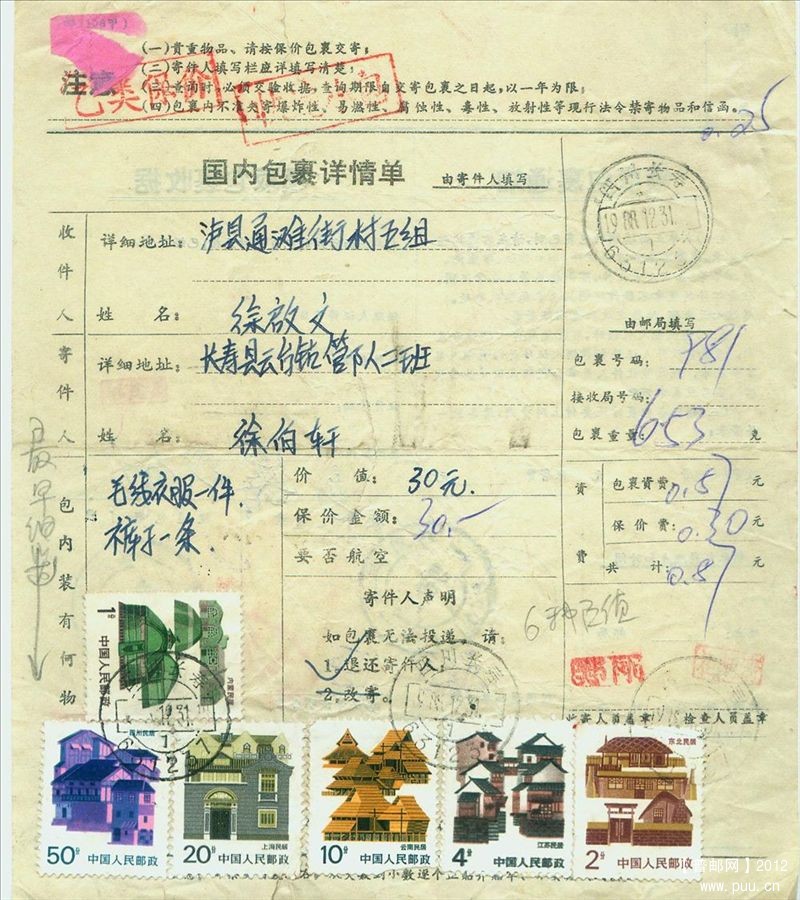 注意
(一)贵重物品、请按保价包裹交寄;
(二)寄件人填写栏应详填写清楚;
(三)查询时,必须交验收据,查询期限自交寄包裹之日起,以一年为限;
(四)包裹内不准夹寄爆炸性、易燃性、腐蚀性、毒性、放射性等现行法令禁寄物品和信函。
乙类保价
0.25
国内包裹详情单 由寄件人填写
四川长寿
1988.12.31
1
631271
收件人
详细地址: 泸县通滩街村五组
姓名: 徐啟文
寄件人
详细地址: 长寿县云台钻管下人二班
姓名: 徐伯轩
由邮局填写
包裹号码: 781
接收局号码:
包裹重量: 653 克
包内装有何物
毛线衣服一件.
裤子一条.
价值: 30元.
保价金额: 30.-
要否航空
资费
包裹资费: 0.57 元
保价费: 0.30 元
共计: 0.87 元
寄件人声明
如包裹无法投递,请:
1.退还寄件人;
2.改寄。
6种面值
四川长寿
1988.12.31
收寄人员盖章
检查人员盖章
1分
中国人民邮政
内蒙民居
四川民居
50分 中国人民邮政
上海民居
20分 中国人民邮政
云南民居
10分 中国人民邮政
江苏民居
4分 中国人民邮政
东北民居
2分 中国人民邮政
邮网】2012
www.puu.cn